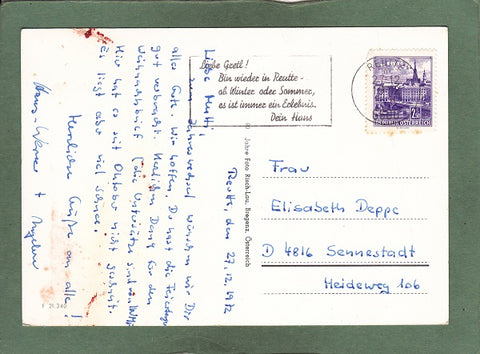 Reutte, den 27.12.1972
Liebe Mutti!
Zum Jahreswechsel wünschen wir Dir
alles Gute. Wir hoffen, Du hast die Feiertage
gut verbracht. Herzlichen Dank für den
Weihnachtsbrief (die Untersätze sind
Hier hat es seit Oktober nicht geschneit.
Es liegt aber viel Schnee.
Herzliche Grüße an alle!
Hans-Werner +
Liebe Gretl!
Bin wieder in Reutte -
ob Winter oder Sommer,
es ist immer ein Erlebnis.
Dein Hans
REUTTE
27.12.
REPUBLIK ÖSTERREICH
Jahre Foto Risch-Lau, Bregenz, Österreich
Frau
Elisabeth Deppe
D 4816 Sennestadt
Heideweg 106